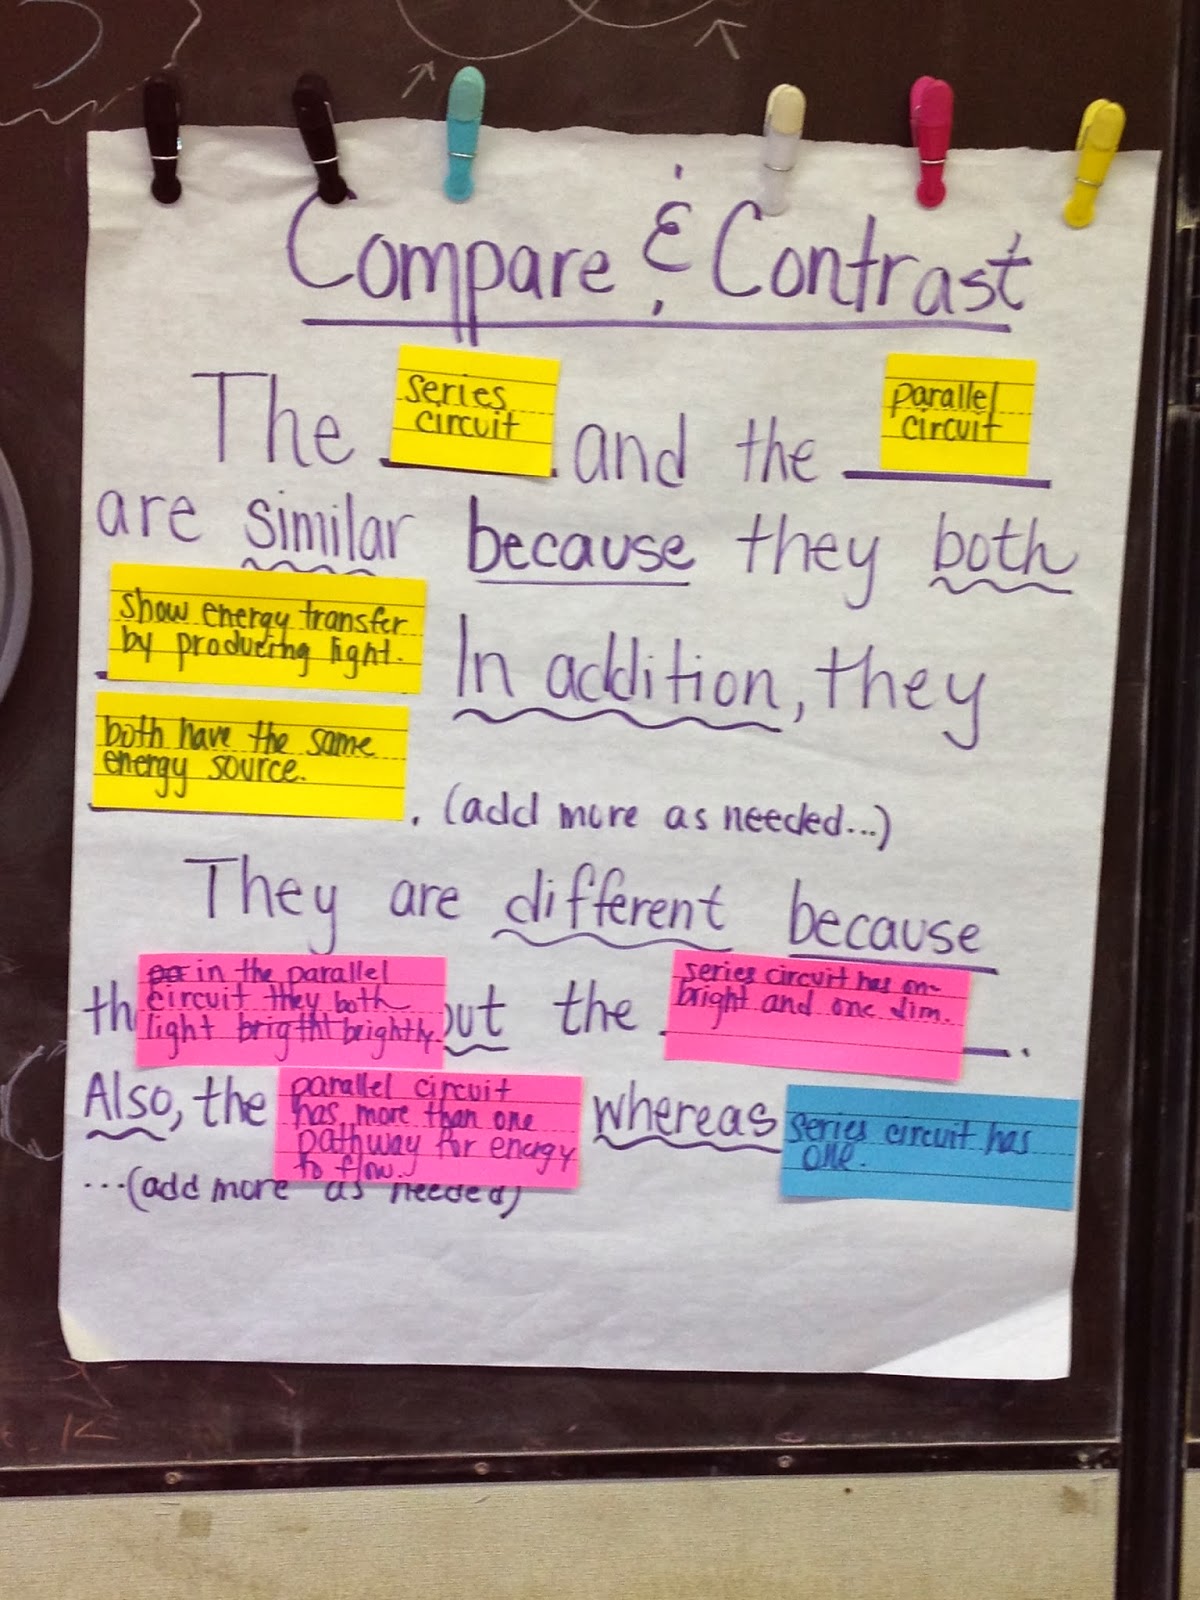 Compare & Contrast
The series circuit and the parallel circuit
are similar because they both
show energy transfer
by producing light.
In addition, they
both have the same
energy source.
. (add more as needed...)
They are different because
th
in the parallel
circuit they both
light brigtht brightly.
out the
series circuit has on
bright and one dim.
.
Also, the
parallel circuit
has more than one
pathway for energy
to flow.
whereas
series circuit has
one.
...(add more as needed)